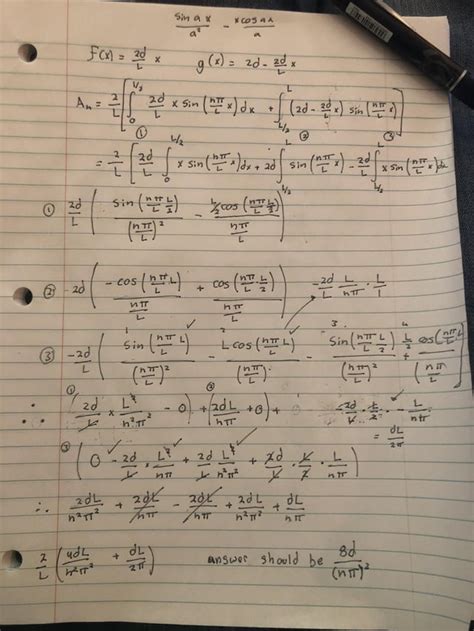 sin ax / a² - x cos ax / a
f(x) = 2d/L x    g(x) = 2d - 2d/L x
Aₙ = 2/L [ ∫₀^{L/2} 2d/L x sin(nπ/L x) dx + ∫_{L/2}^{L} (2d - 2d/L x) sin(nπ/L x) ]
① ② ③
= 2/L [ 2d/L ∫₀^{L/2} x sin(nπ/L x) dx + 2d ∫_{L/2}^{L} sin(nπ/L x) - 2d/L ∫_{L/2}^{L} x sin(nπ/L x) dx
① 2d/L ( sin(nπ/L L/2) / (nπ/L)² - L/2 cos(nπ/L L/2) / nπ/L )
② -2d ( -cos(nπ/L L) / nπ/L + cos(nπ/L · L/2) / nπ/L )    -2d/L · L/nπ · L/1
③ -2d/L ( sin(nπ/L L) / (nπ/L)² - L cos(nπ/L L) / (nπ/L) - sin(nπ/L L/2) / (nπ/L)² + L/2 cos(nπ/L L/2) / (nπ/L)
∴ ( 2d/L × L²/n²π² - 0 ) + ( 2dL/nπ + 0 ) + 0    - 2d/L · L/2 · - L/nπ
= dL/2π
③ ( 0 - 2d/L · L²/nπ + 2d/L L²/n²π² + 2d/L · L/2 · L/nπ )
∴ 2dL/n²π² + 2dL/nπ - 2dL/nπ + 2dL/n²π² + dL/nπ
2/L ( 4dL/n²π² + dL/2π )    answer should be 8d/(nπ)²